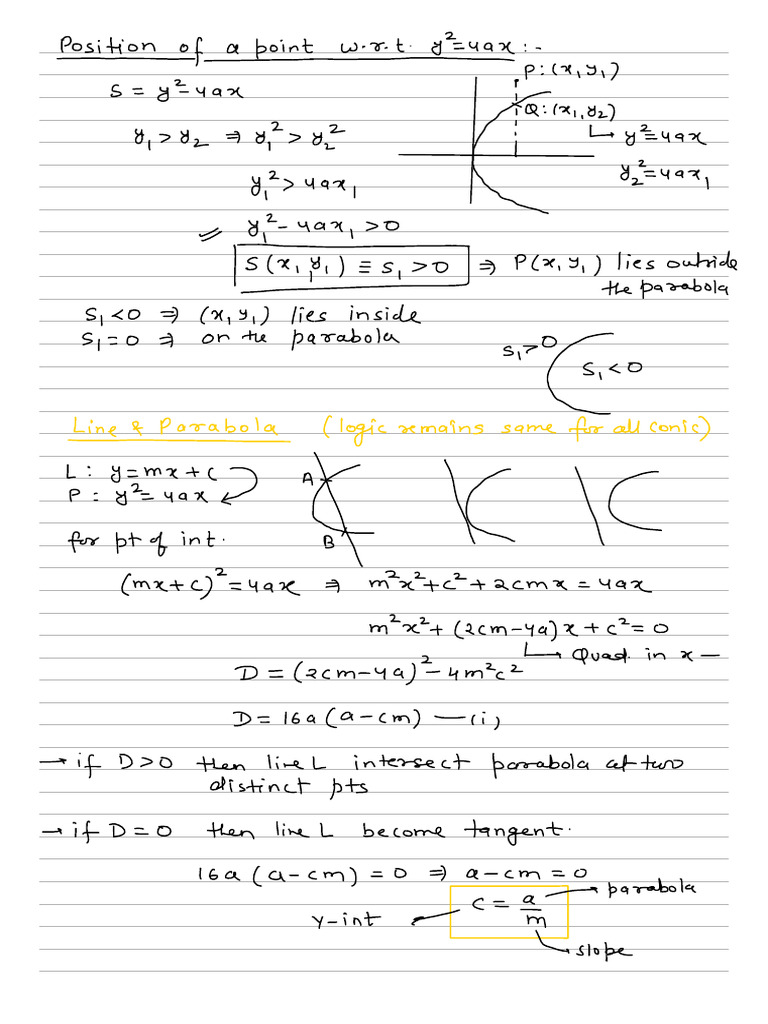 Position of a point w.r.t. y²=4ax:-
P:(x₁y₁)
S = y²-4ax
Q:(x₁,y₂)
y₁>y₂ ⇒ y₁²>y₂²
↳ y²=4ax
y₂²=4ax₁
y₁²>4ax₁
y₁²-4ax₁>0
S(x₁,y₁)≡S₁>0 ⇒ P(x₁y₁) lies outside
the parabola
S₁<0 ⇒ (x₁y₁) lies inside
S₁=0 ⇒ on the parabola
S₁>0
S₁<0
Line & Parabola (logic remains same for all conic)
L: y=mx+c
P: y²=4ax
A
B
for pt of int.
(mx+c)²=4ax ⇒ m²x²+c²+2cmx=4ax
m²x²+(2cm-4a)x+c²=0
↳ Quad. in x —
D=(2cm-4a)²-4m²c²
D=16a(a-cm) —(i)
→ if D>0 then line L intersect parabola at two
distinct pts
→ if D=0 then line L become tangent.
16a(a-cm)=0 ⇒ a-cm=0
y-int ← c = a/m → parabola
→ slope